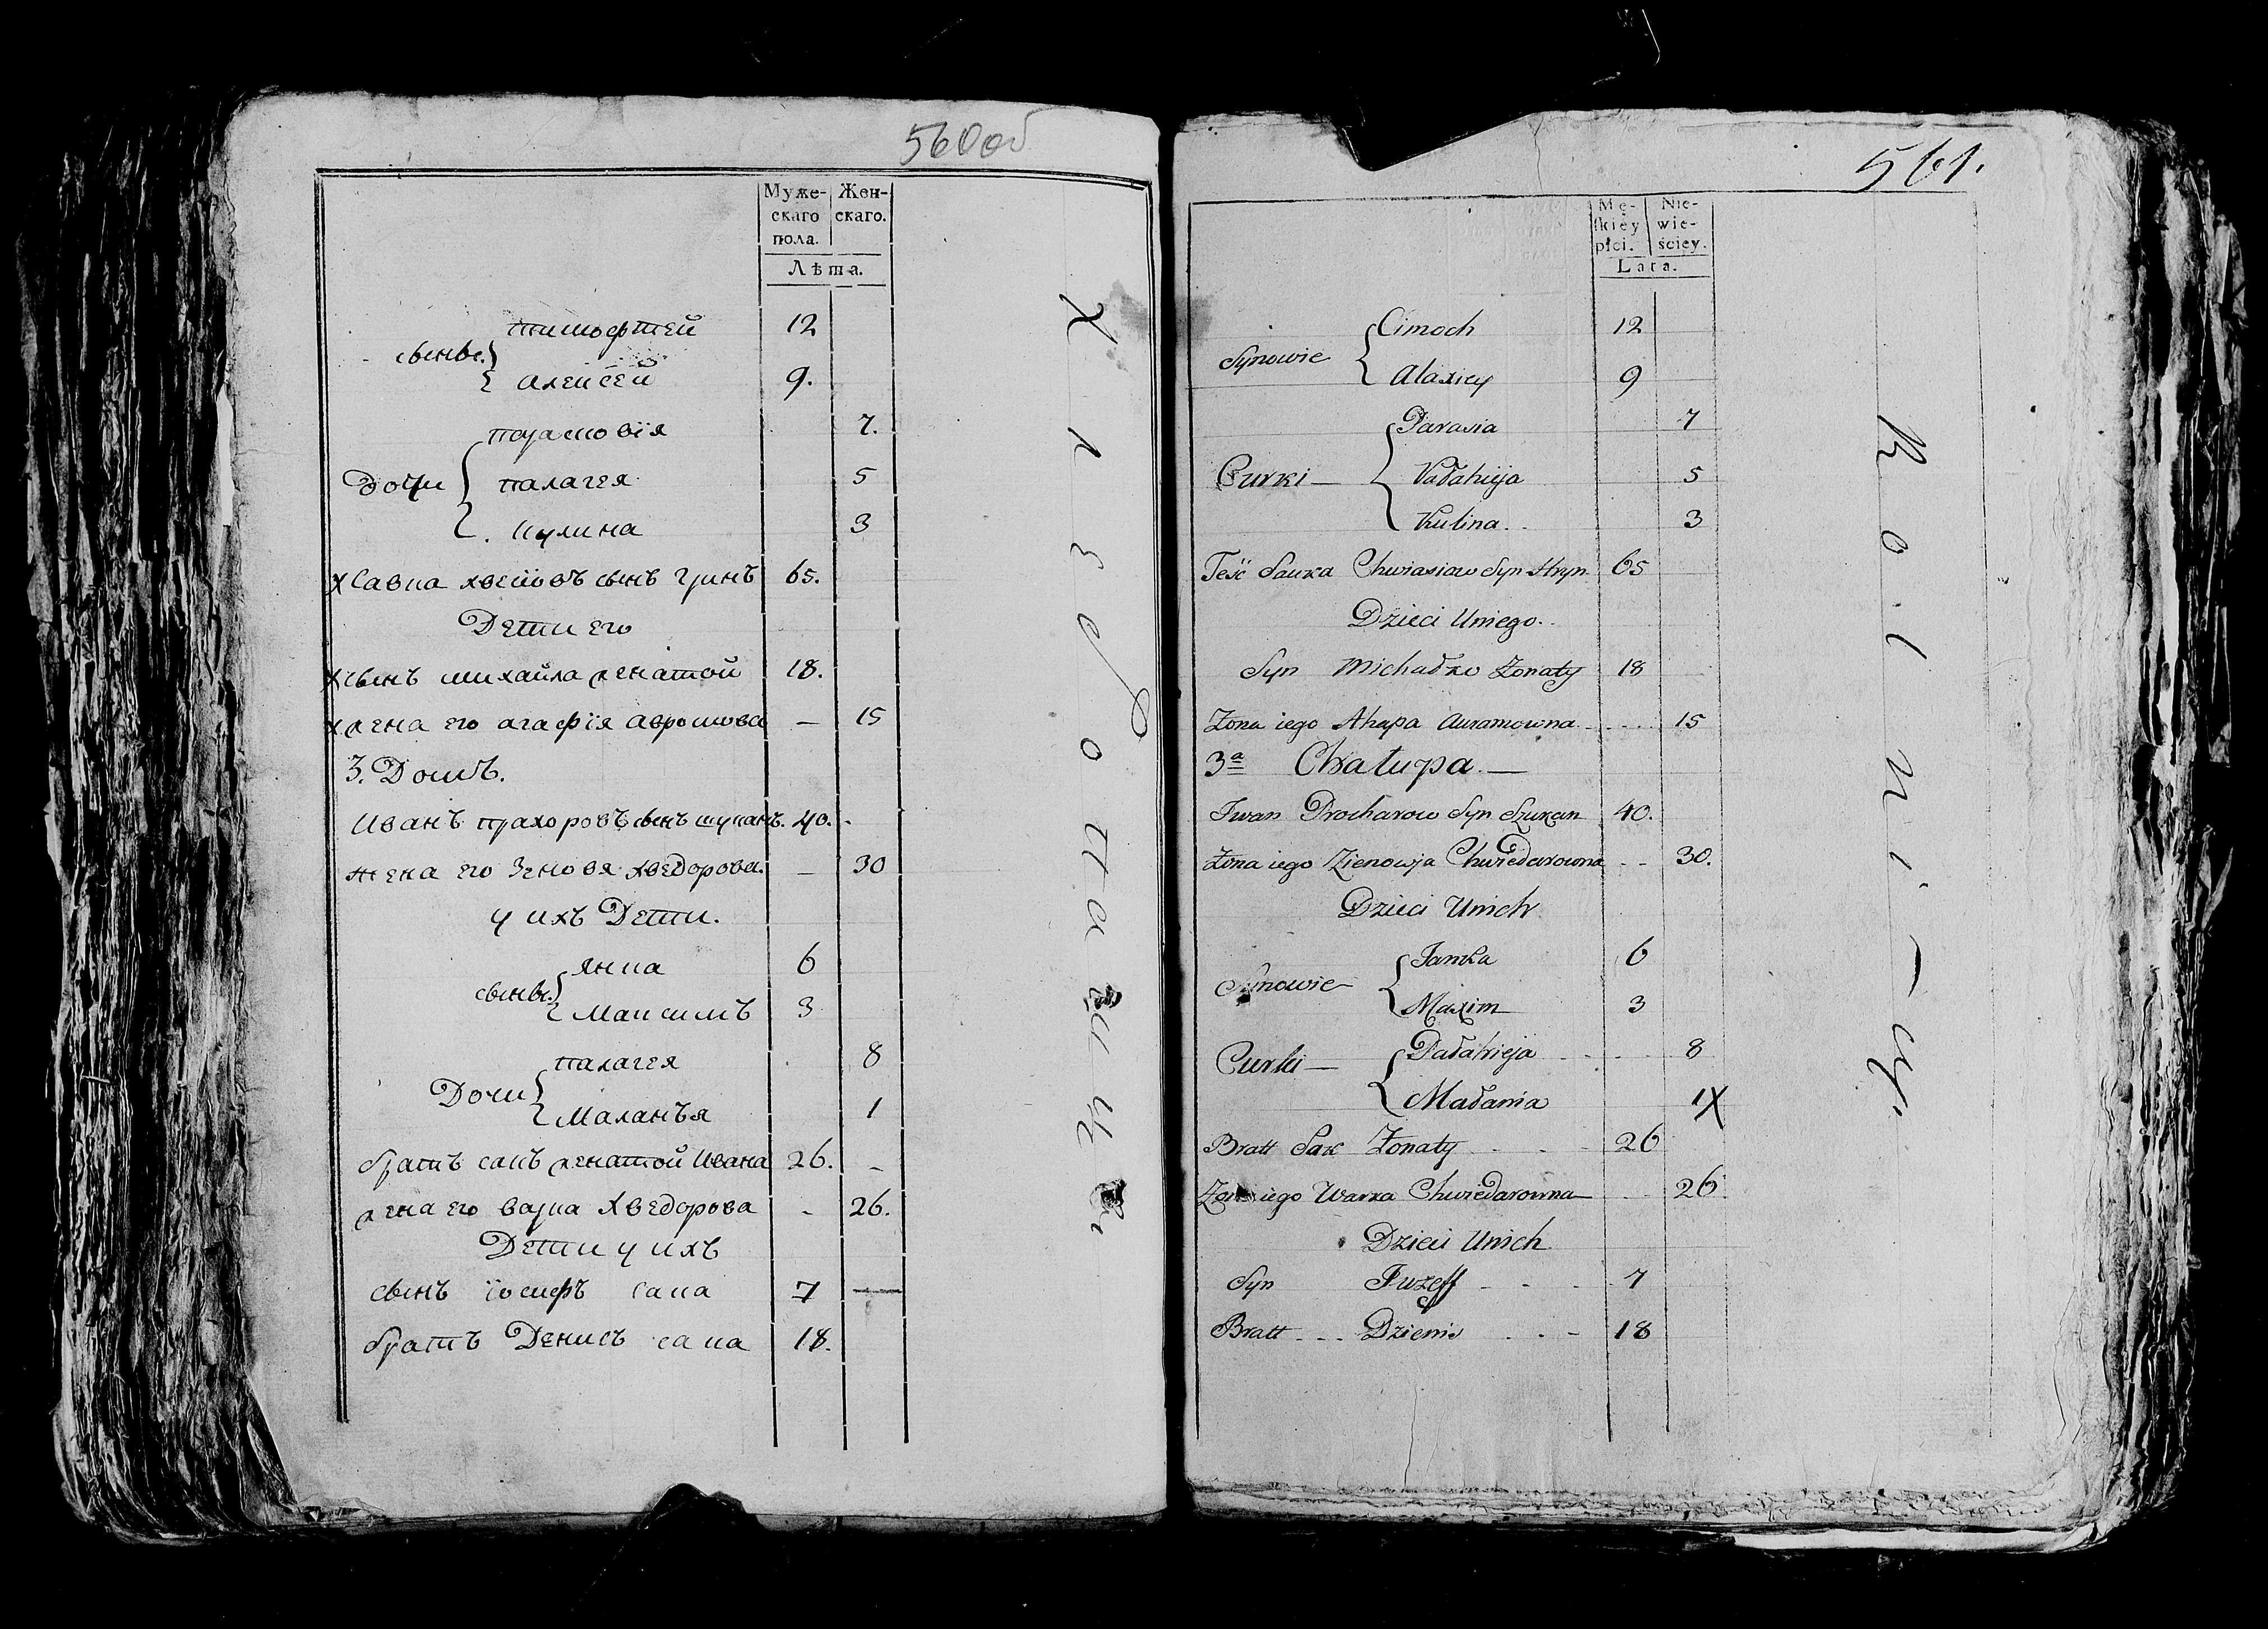 560об
Муже-
скаго
пола.
Жен-
скаго.
Лѣта.
тимофтей 12
сынве.
Алексей 9.
прасковія 7.
Дочки палагея 5
кулина 3
х Савка хвесіовъ сынъ Гринъ 65.
Дети его
х сынъ михайла женатой 18.
х жена его агафія аврамова — 15
3. Домъ.
Иванъ прахоровъ сынъ шуканъ. 40.
жена его Зеновя хведорова. — 30
у ихъ Дети.
янка 6
сынве.
Максимъ 3
палагея 8
Дочки
Маланъя 1
братъ сакъ женатой Ивана 26. -
жена его варка хведорова - 26.
Дети у ихъ
сынъ іосифъ сака 7 —
братъ Денисъ сака 18.
Хлѣбопашцы
561.
Mę-
ſkiey
płci.
Nie-
wie-
ściey.
Lata.
Cimoch 12
Synowie
Alaxiey 9
Parasia 7
Curki — Pałahija 5
Kulina 3
Teść Sauka Chwiasiow Syn Hryn 65
Dzieci Uniego
Syn Michałko Żonaty 18
Żona iego Ahapa Auramowna 15
3a Chałupa. —
Iwan Procharow Syn Szukan 40.
Żona iego Zienowja Chwiedarowna 30.
Dzieci Unich
Janka 6
Synowie
Maxim 3
Curki — Pałahieja 8
Małania 1X
Bratt Sak Żonaty 26
Żona iego Warka Chwiedarowna 26
Dzieci Unich
Syn Juzeff 7
Bratt Dzienis 18
Rolni-cy.